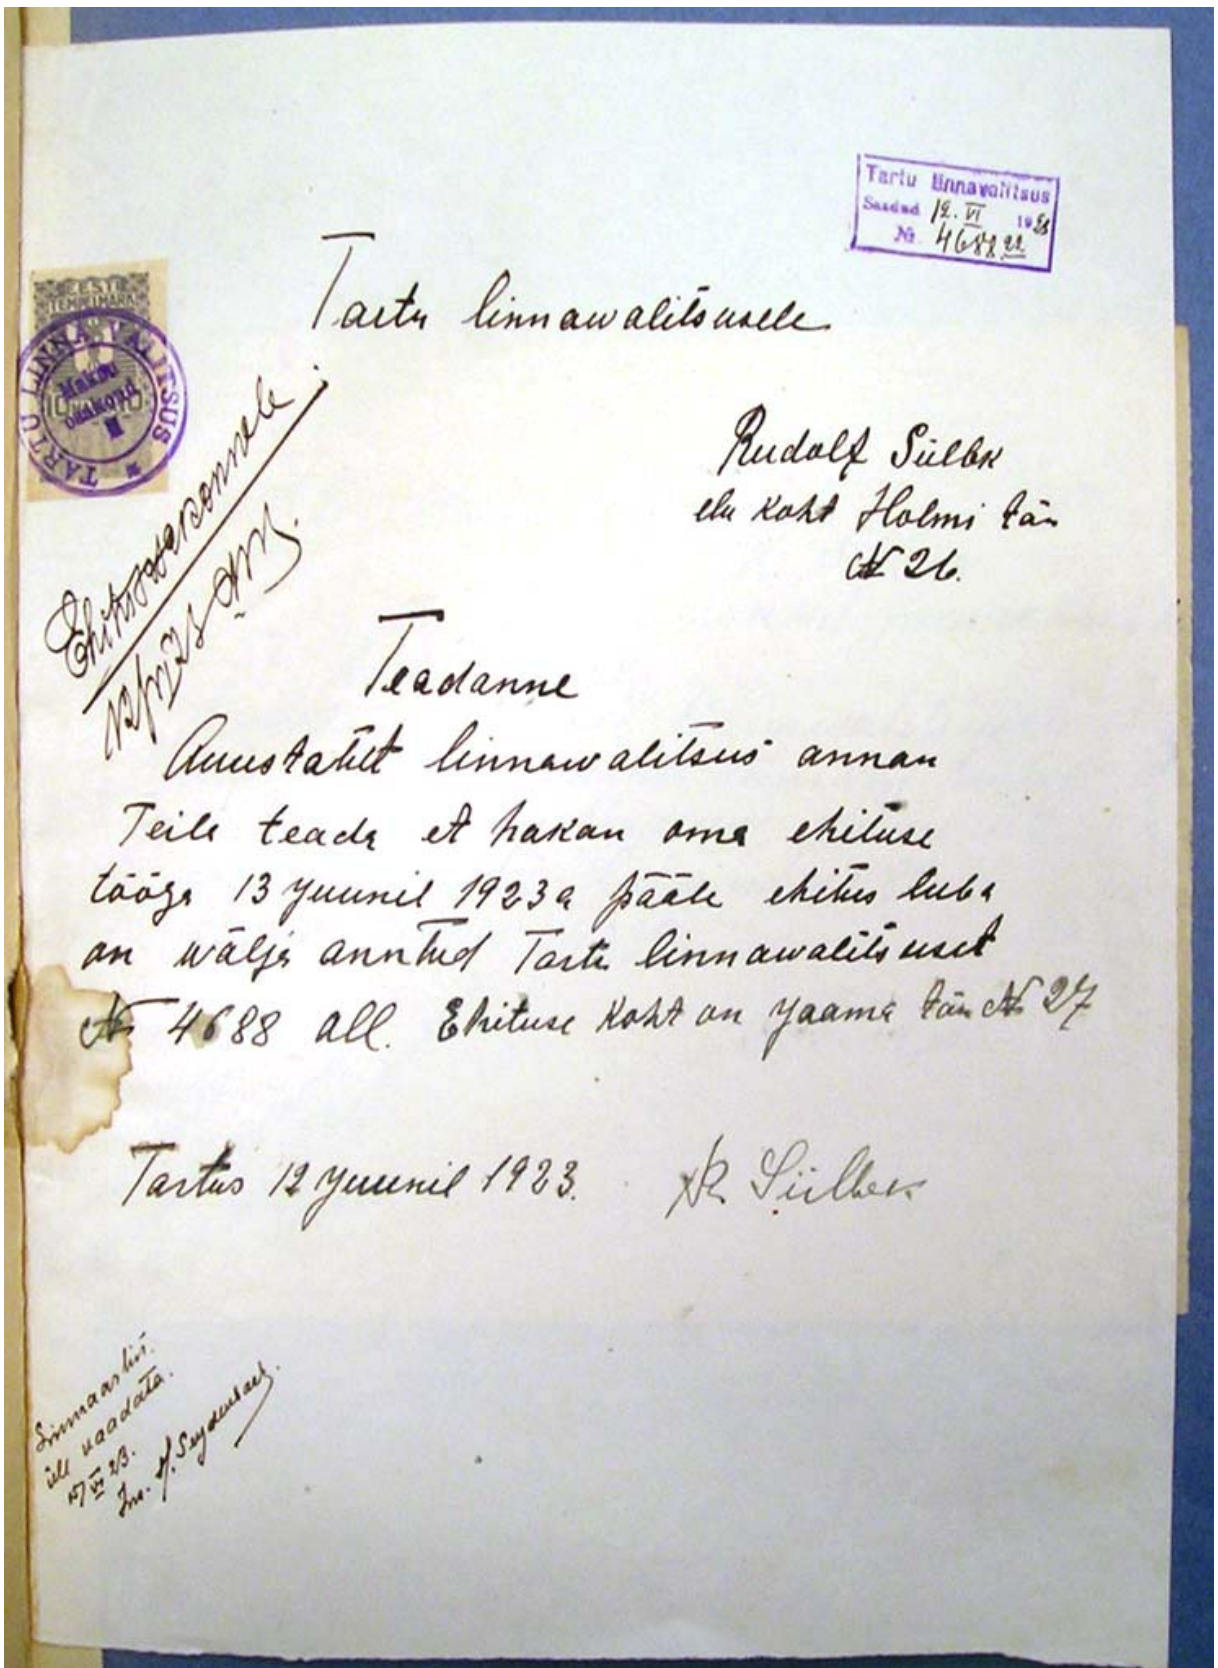 Tartu linnavalitsus
Saadud 12. VI 1923
№ 4688 22
Tartu linnawalitsusele
EESTI
TEMPELMARK
TARTU LINNAVALITSUS
Maksu
osakond
Ehitusosakonnale.
Rudolf Sülbk
elu koht Holmi tän
№ 26.
Teadanne
Auustatut linnawalitsus annan
Teile teada et hakan oma ehituse
tööga 13 Juunil 1923 a pääle ehitus luba
on wälja anntud Tartu linnawalitsuset
№ 4688 all. Ehituse koht on Jaama tän № 27
Tartus 12 Juunil 1923. R Sülbek
üle vaadata.
VI 23.
Ins.